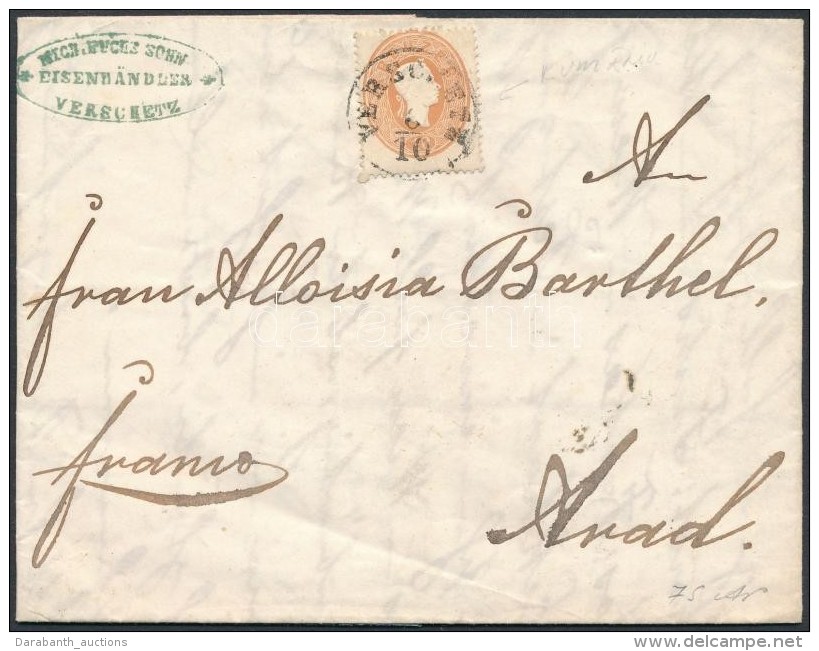 MICH. FUCHS SOHN
EISENHÄNDLER
VERSCHETZ
VERSCHETZ
6/10
An
Frau Alloisia Barthel.
darabanth
franco
Arad.
75
Darabanth_auctions
delcampe.net